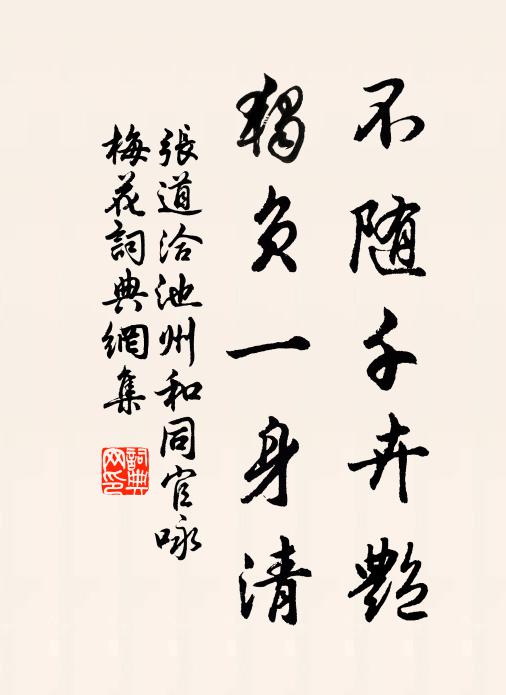 不随千卉艷
獨負一身清
張道洽池州和同官咏
梅花詞典網集
詞典
网印